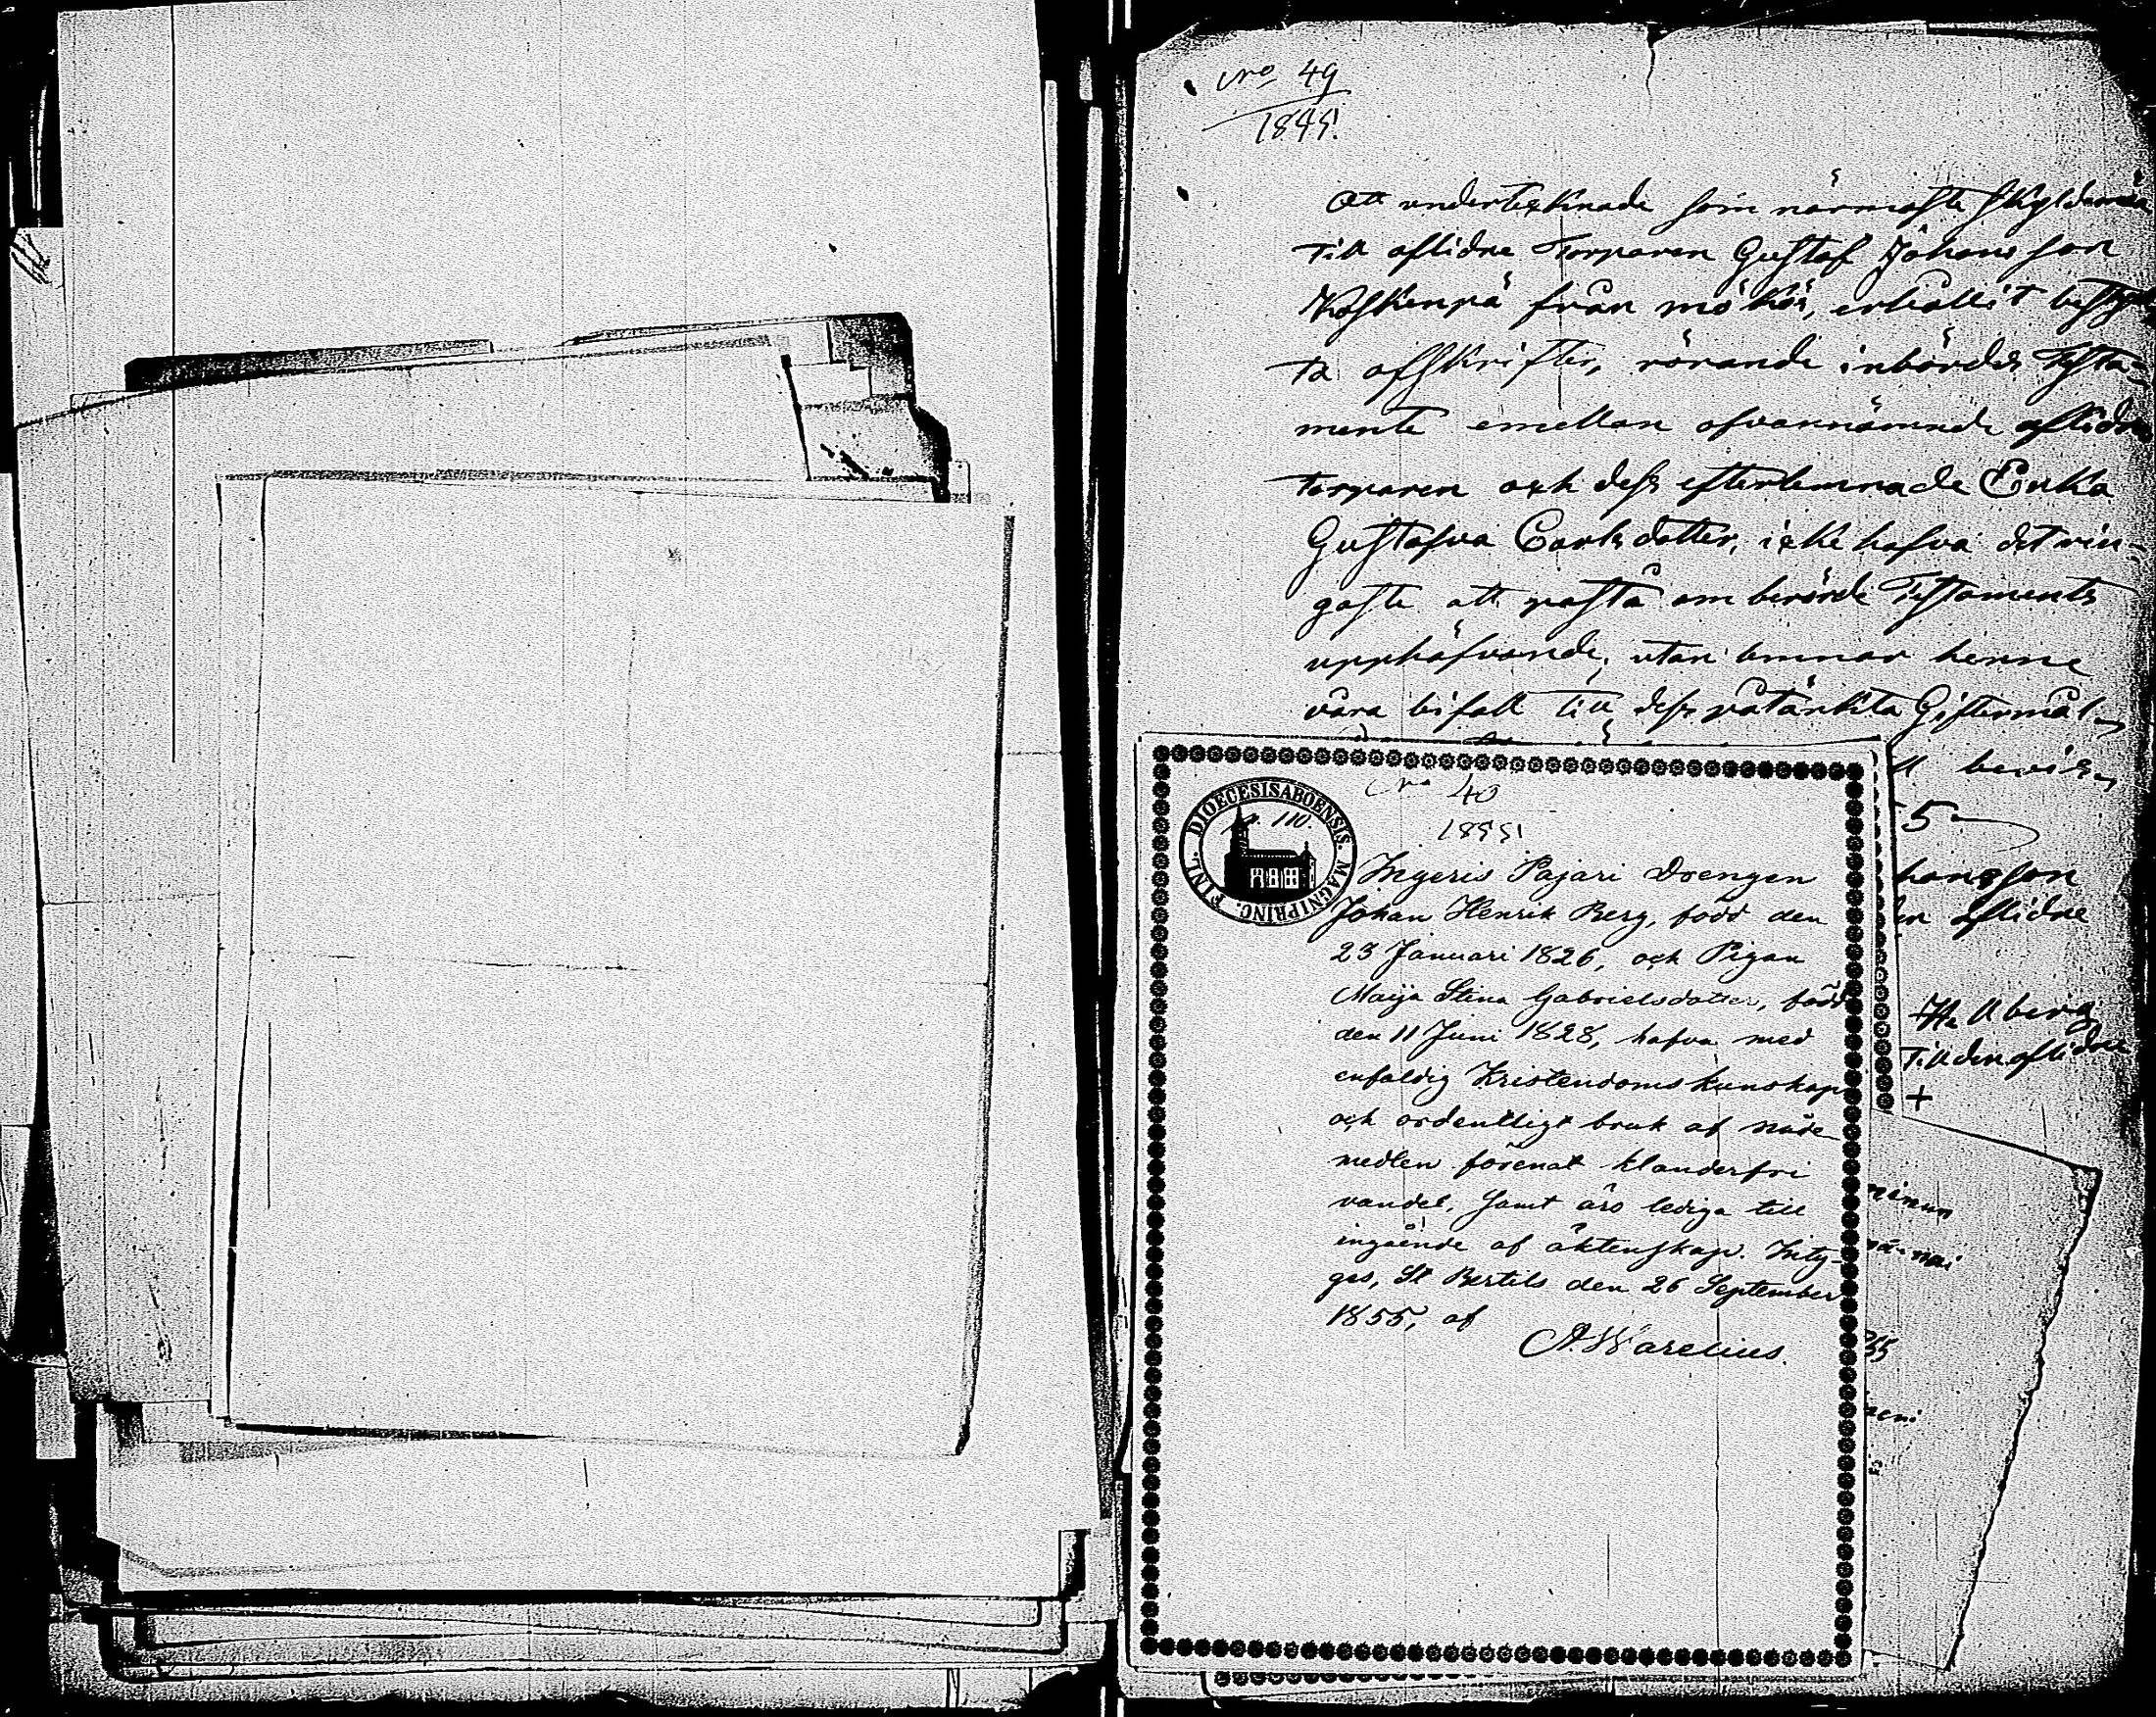 No 49
1845!
Att undertecknade som närmaste skyldemän
till aflidne Torparen Gustaf Johansson
från erhållit
ta afskrifter, rörande inbördes Testa-
mente emellan ofvannämnde aflidne
torparen och dess efterlemnade Enka
Gustafva Carlsdotter, icke hafva det rin-
gaste att påstå om berörde Testaments
upphäfvande, utan lemnar henne
våra bifall till dess påtänkta Giftermål,
bevis,
5
hansson
en aflidne
Hellberg
till den aflidne
+
No 40
1855!
DIOECESIS ABOENSIS. MAGNI PRINC. FINL.
110.
Ingeris Pajari Drengen
Johan Henrik Berg, född den
23 Januari 1826, och Pigan
Maija Stina Gabrielsdotter, född
den 11 Juni 1828, hafva med
enfaldig Kristendomskunskap
och ordentligt bruk af nåde-
medlen förenat klanderfri
vandel, samt äro lediga till
ingående af äktenskap. Intyg-
gas, St Bertils den 26 September
1855, af
A. Warelius.
minun
55